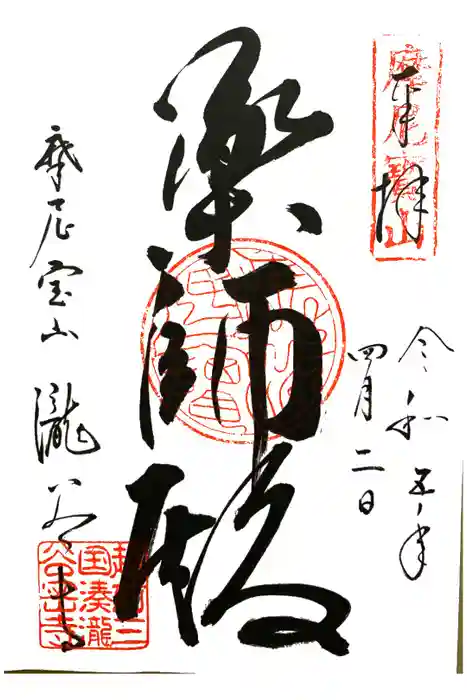 奉拝
摩尼寳山
令和五年
四月二日
薬師殿
摩尼宝山 瀧谷寺
越前三
国湊瀧
谷寺